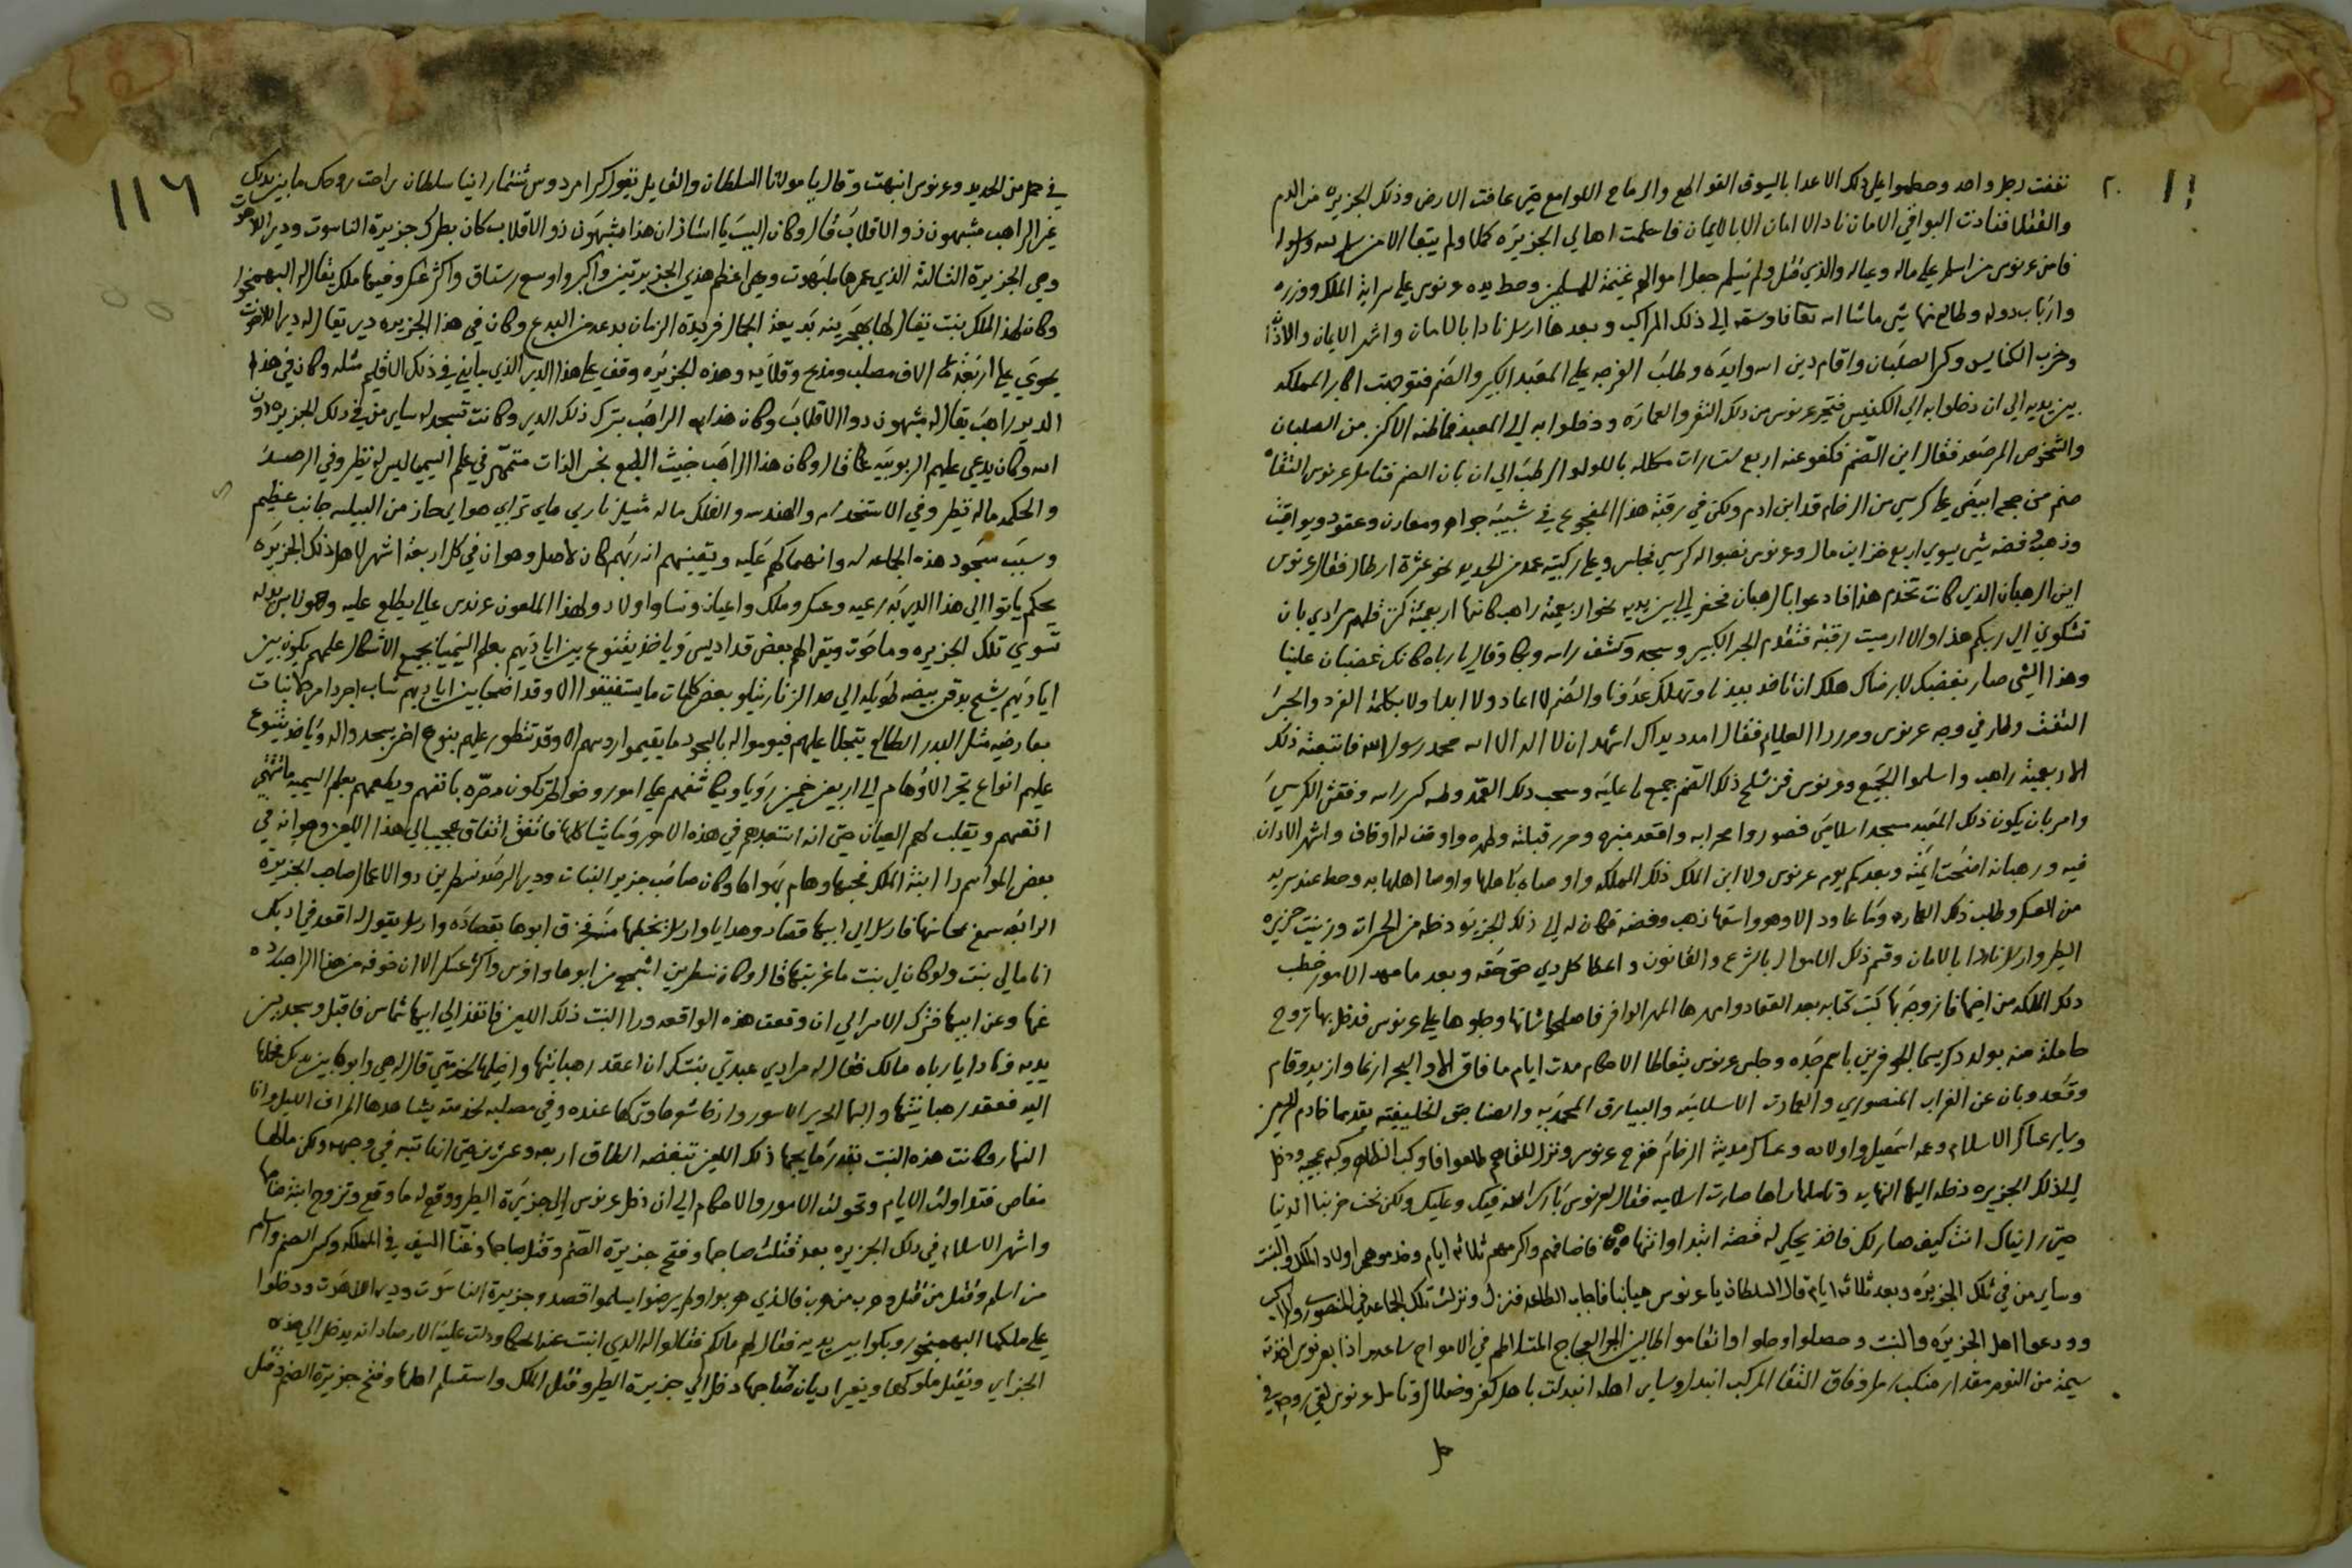 نفقت رجل واحد وحطموا علي ذلك الاعدا بالسيوف القواطع والرماح اللوامع حتي عافت الارض وذلك الجزيره من الدم
والقتلا فنادت البواقي الامان نادا لا امان الا بالايمان فاسلمت اهالي الجزيره كملا ولم يتبقا الا من سلم لله
فامن عرنوس من اسلم علي ماله وعياله والذي قتل ولم يسلم جعل اموالهم غنيمة للمسلمين وحط يده عرنوس علي سراية الملك ووزره
وارباب دوله وطالع منها شي ماشا الله تعالا وسقه الي ذلك المراكب وبعدها ارسل نادا بالامان واشهر الايمان والاذان
وخرب الكنايس وكسر الصلبان واقام دين الله وايده وطلب الفرجه علي المعبد الكبير والصنم فتوجهت اكابر المملكه
بين يديه الي ان دخلوا به الي الكنيس فتحير عرنوس من ذلك النقر والعماره ودخلوا به الي المعبد فما ظنه الاكنز من الصلبان
والشخوص المرصعه فقال اين الصنم فكفو عنه اربع ستارات مكلله باللولو الرطب الي ان بان الصنم فتامل عرنوس التقاه
صنم من حجر ابيض علي كرسي من الرخام قد ابن ادم ولكن في رقبة هذا المفجوع في شبيبه جواهر ومعادن وعقود ويواقيت
وذهب فضه شي يسوي اربع خزاين مال وعرنوس نصبوا له كرسي فجلس وعلي ركبته عمد من الحديد نحو عشرة ارطال فقال عرنوس
اين الرهبان الذي كانت تخدم هذا فادعوا بالرهبان فحضر الي بين يديه نحو اربعمية راهب كانها اربعمية كنز قلهم مرادي بان
تشكوني الي ربكم هذا والا ارميت رقبته فتقدم الحبر الكبير وسجد وكشف راسه وبكا وقال يا رباه كانك غضبان علينا
وهذا الشي صار بغضبك لا برضاك هلك ان تاخذ بيدنا وتهلك عدونا والصنم لا اعاد ولا ابدا ولا بكلمة الفرد والحبر
التفت وطار في وجه عرنوس ومردرا العليام فقال امدد يدك اشهد ان لا اله الا الله محمد رسول الله فاتبعته ذلك
الاربعمية راهب واسلموا الجميع وعرنوس فز شلح ذلك الصنم جميع ما عليه وسحب ذلك العمد وطه كسر راسه وفقش الكرسي
وامر بان يكون ذلك المعبد مسجد اسلامي فصوروا محرابه واقعد منبره وحرر قبلته وطهره واوقف له اوقاف واشهر الاذان
فيه ورهبانه اضحت ايمته وبعدكم يوم عرنوس ولا ابن الملك ذلك المملكه واوصاه باهلها واوصا اهلها به وحط عنده سريه
من العسكر وطلب ذلك العماره وما عاود الا وهو واسقها ذهب وفضه فكان له الي ذلك الجزيره دخله من الحسرات وزينت جزيره
البطر وارسل نادا بالامان وقسم ذلك الاموال بالشرع والقانون واعطا كل ذي حق حقه وبعد ما مهد الامور خطب
ذلك الملكه من اخيها فازوجه بها كتب كتابه بعد العقاد وامهرها المهر الوافر فاصلحوا شانها وجلوها علي عرنوس فدخل بها تروح
حامله منه بولد ذكر يسما الجوفرين باسم جده وجلس عرنوس يتعاطا الاحكام مدت ايام ما فاق الا والبحر ارغا وازبد وقام
وقعد وبان عن الغراب المنصوري والعمارت الاسلاميه والبيارق المحمديه وانصا حق الخليفيه يقدمها خادم الحرمين
وساير عساكر الاسلام وعمه اسمعيل واولاده وعساكر مدينة الرخام ففرح عرنوس ونزل للقاهم طلعوا فاوكب الظاهر وكبه عجيبه ودخل
الي ذلك الجزيره دخله اليها النهايه وتاملها راها صارت اسلاميه فقال لعرنوس بارك الله فيك وعليك ولكن نحن خربنا الدنيا
حتي راينياك انت كيف صار لك فاخذ يحكي له قصته ابتدا وانتها فاضافهم واكرمهم ثلاثة ايام وخدموهم اولاد الملك والبنت
وساير من في تلك الجزيره وبعد ثلاثه ايام قال السلطان يا عرنوس هيا بنا فاجاب الطاعه فنزل ونزلت تلك الجماعه في المنصوري والمراكب
وودعوا اهل الجزيره والبنت وحصلوا وحلوا واتقاموا طالبين البحر العجاج المتلاطم في الامواج ساعه واذا بعرنوس اخذته
سيمة من النوم مقدار منكب رمل وفاق التقا المركب اتبدل وساير اهله اتبدلت باهل كفر وضلال وتامل عرنوس لقي روحه في
في حمل من الحديد وعرنوس انبهت وقال يا مولانا السلطان والقايل يقول كرا مردوس شتمار انيا سلطان راحت روحك ما بين يديك
غير الراهب مشبهون ذو الاقلاب قال وكان السبب يا استاذ ان هذا مشبهون ذو الاقلاب كان بطرك جزيرة الناسوت ودير اللاهوت
وهي الجزيرة الثالثة الذي عمرها بلبهوت وهي اعظم هذي الجزيرتين واكبر واوسع رستاق واكثر عسكر وفيها ملك يقال له البهمنحور
وكان لهذا الملك بنت يقال لها بهجرينه بديعة الجمال فريدة الزمان بدعه من البدع وكان في هذا الجزيره دير يقال له دير اللاهوت
يحوي علي اربعة الاف مصلب ومذبح وقلايه وهذه الجزيره وقف علي هذا الدير الذي ما بني في ذلك الاقليم مثله وكان في هذا
الدير راهب يقال له مشبهون ذوا الاقلاب وكان هذا به الراهب بترك ذلك الدير وكانت تسجد له ساير من في ذلك الجزيره دون
الله وكان يدعي عليهم الربوبيه قال وكان هذا الراهب خبيث الطبع نجس الذات متمهر في علم السيميا ليس له نظير وفي الرصد
والحكمه ما له نظير وفي الاستخدام والهندسه والفلك ما له مثيل ناري ماي ترابي هواي حاز من البيلسه جانب عظيم
وسبب سجود هذه الجماعه له وانهماكهم عليه ويقينهم انه ربهم كان لاصل وهو ان في كل اربعة اشهر لاهل ذلك الجزيره
يحكم ياتوا الي هذا الدير رعيه وعسكر وملك واعيان ونسا واولاد ولهذا الملعون عرندس عالي يطلع عليه وهو لابس بدله
تسوي تلك الجزيره وما حوت ويقرا لهم بعض قداديس وياخذ يتنوع بين ايديهم بعلم السيميا بجميع الاشكال علمهم يكون بين
اياديهم يشح بدقن بيضه طويله الي حد الزنار يتلو بعض كلمات ما يستفيقوا الا وقد اضحا بين اياديهم شاب اجرد امرد بنات
بعارضيه مثل البدر الطالع يتجلا عليهم فيوموا له بالسجود ما يقيموا روسهم الا وقد تطور عليهم بنوع اخر يسجدوا له وياخذ يتنوع
عليهم انواع تحير الاوهام الي اربعين خمسين رويا ويكاشفهم علي امور وضواهر تكون مصره بانفهم ويطعمهم بعلم السيميه ما تشتهي
انفسهم ويقلب لهم العيان حتي انه استعبدهم في هذه الامور وما يشاكلها فاتفق اتفاق عجيب الي هذا اللعين وهو انه في
بعض المواسم را ابنة الملك فحبها وهام بهواها وكان صاحب جزير النبات ودير الرصد نسطرين ذو الاعمال صاحب الجزيره
الرابعه سمع بمحاسنها فارسل الي ابيها قصاد وهدايا وارسل يخطبها منه فخزق ابوها بقصاده وارسل يقول له اقعد في ادبك
انا مالي بنت ولو كان لي بنت ما غربتها قال وكان نسطرين اشجع من ابوها وافرس واكثر عسكر الا ان خوفه من هذا الراهب رده
عنها وعن ابيها فترك الامر الي ان وقعت هذه الواقعه ورا البنت ذلك اللعين فانفذ الي ابيها شماس فاقبل وسجد بين
يديه ونادا يا رباه مالك فقال له مرادي عبدتي بنتك ان اعقد رهبانيتها واخليها لخدمتي قال له هي وابوها بين يديك فجلها
اليه فعقد رهبانيتها والبها الحرير الاسود واذخا شعرها وتركها عنده وفي مصلبه لخدمته يشاهدها اطراف الليل وانا
النهار وكانت هذه البنت بقدر ما يحبها ذلك اللعين تبغضه الطاق اربعه وعشرين حتي انها تبه في وجهه ولكن مالها
مناص فتداولت الايام وتحولت الامور والاحكام الي ان دخل عرنوس الي جزيرة البطر ووقع له ما وقع وتزوج ابنة صاحبها
واشهر الاسلام في ذلك الجزيره بعد قتلت صاحبها وفتح جزيرة الصنم وقتل صاحبها وغنا السيف في المملكه وكسر الصنم واسلم
من اسلم وقتل من قتل وهرب من هرب فالذي هربوا ولم يرضوا يسلموا قصدو جزيرة الناسوت ودير اللاهوت ودخلوا
علي ملكها البهمنحور وبكوا بين يديه فقال لهم مالكم فقالوا له الذي انبت عنه الحكما ودلت عليه الارصاد انه يدخل الي هذه
الجزاير ويقتل ملوكها ويغير اديان صاحبها دخل الي جزيرة البطر وقتل الملك واستسلم اهلها وفتح جزيرة الصنم وقتل
١١٦